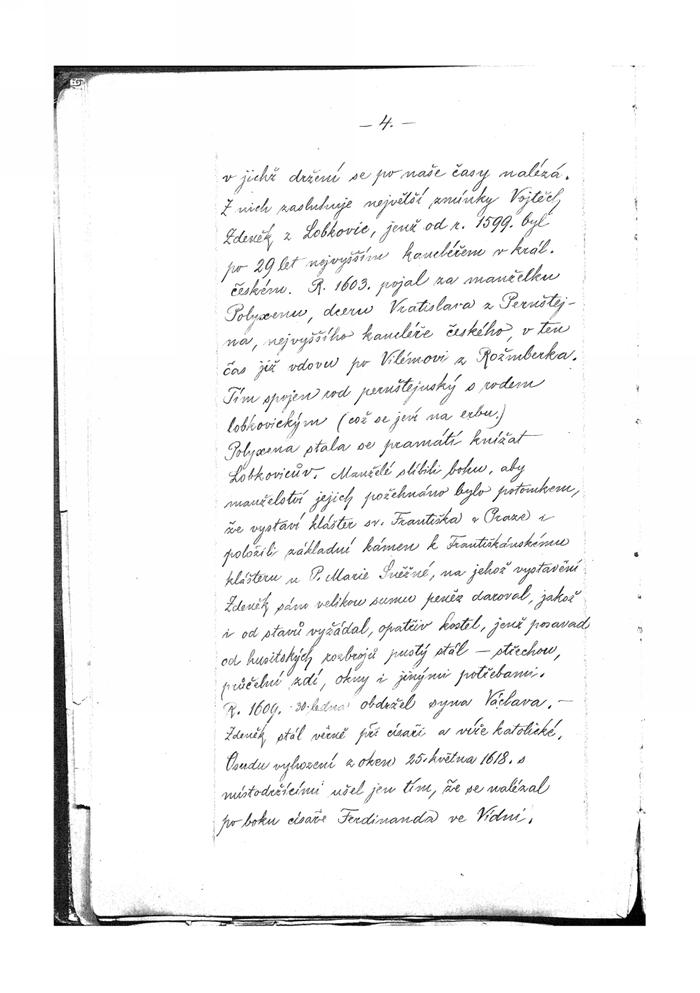 – 4. –
v jichž držení se po naše časy nalézá.
Z nich zasluhuje největší zmínky Vojtěch
Zdeněk z Lobkovic, jenž od r. 1599. byl
po 29 let nejvyšším kancléřem v král.
českém. R. 1603. pojal za manželku
Polyxenu, dceru Vratislava z Pernštej-
na, nejvyššího kancléře českého, v ten
čas již vdovu po Vilémovi z Rožmberka.
Tím spojen rod pernštejnský s rodem
lobkovickým (což se jeví na erbu.)
Polyxena stala se pramátí knížat
Lobkovicův. Manželé slíbili bohu, aby
manželství jejich požehnáno bylo potomkem,
že vystaví klášter sv. Františka v Praze i
položili základní kámen k Františkánskému
klášteru u P. Marie Sněžné, na jehož vystavění
Zdeněk sám velikou sumu peněz daroval, jakož
i od stavů vyžádal, opatřiv kostel, jenž posavad
od husitských rozbrojů pustý stál – střechou,
průčelní zdí, okny i jinými potřebami.
R. 1609. 30. ledna obdržel syna Václava. –
Zdeněk stál věrně při císaři a víře katolické.
Osudu vyhození z oken 25. května 1618. s
místodržícími ušel jen tím, že se nalézal
po boku císaře Ferdinanda ve Vídni.